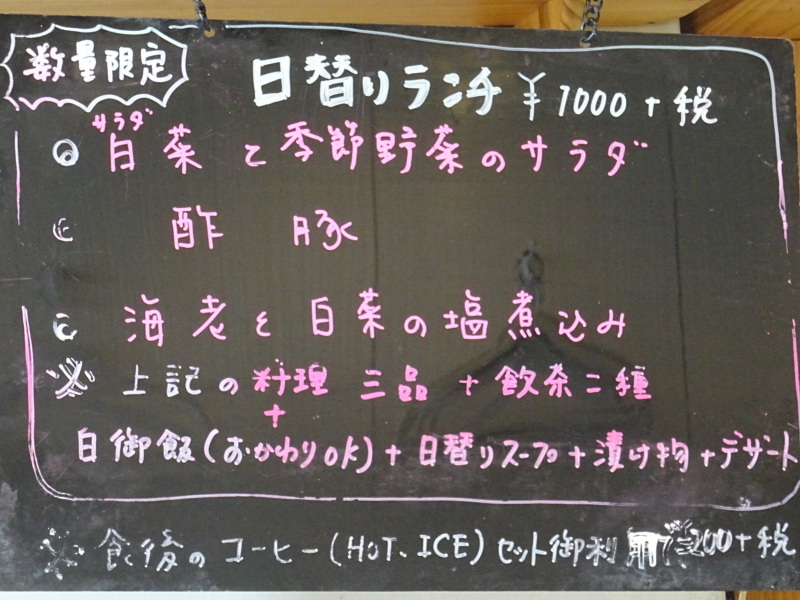 数量限定
日替りランチ ¥1000+税
サラダ
◎白菜と季節野菜のサラダ
◎酢豚
◎海老と白菜の塩煮込み
※上記の料理三品+飲茶二種
+
白御飯(おかわりOK)+日替りスープ+漬け物+デザート
※食後のコーヒー(HOT、ICE)セット御利用で 200+税